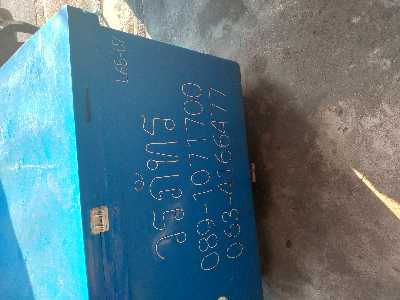 วรภัทร
089-1071700
063-4166477